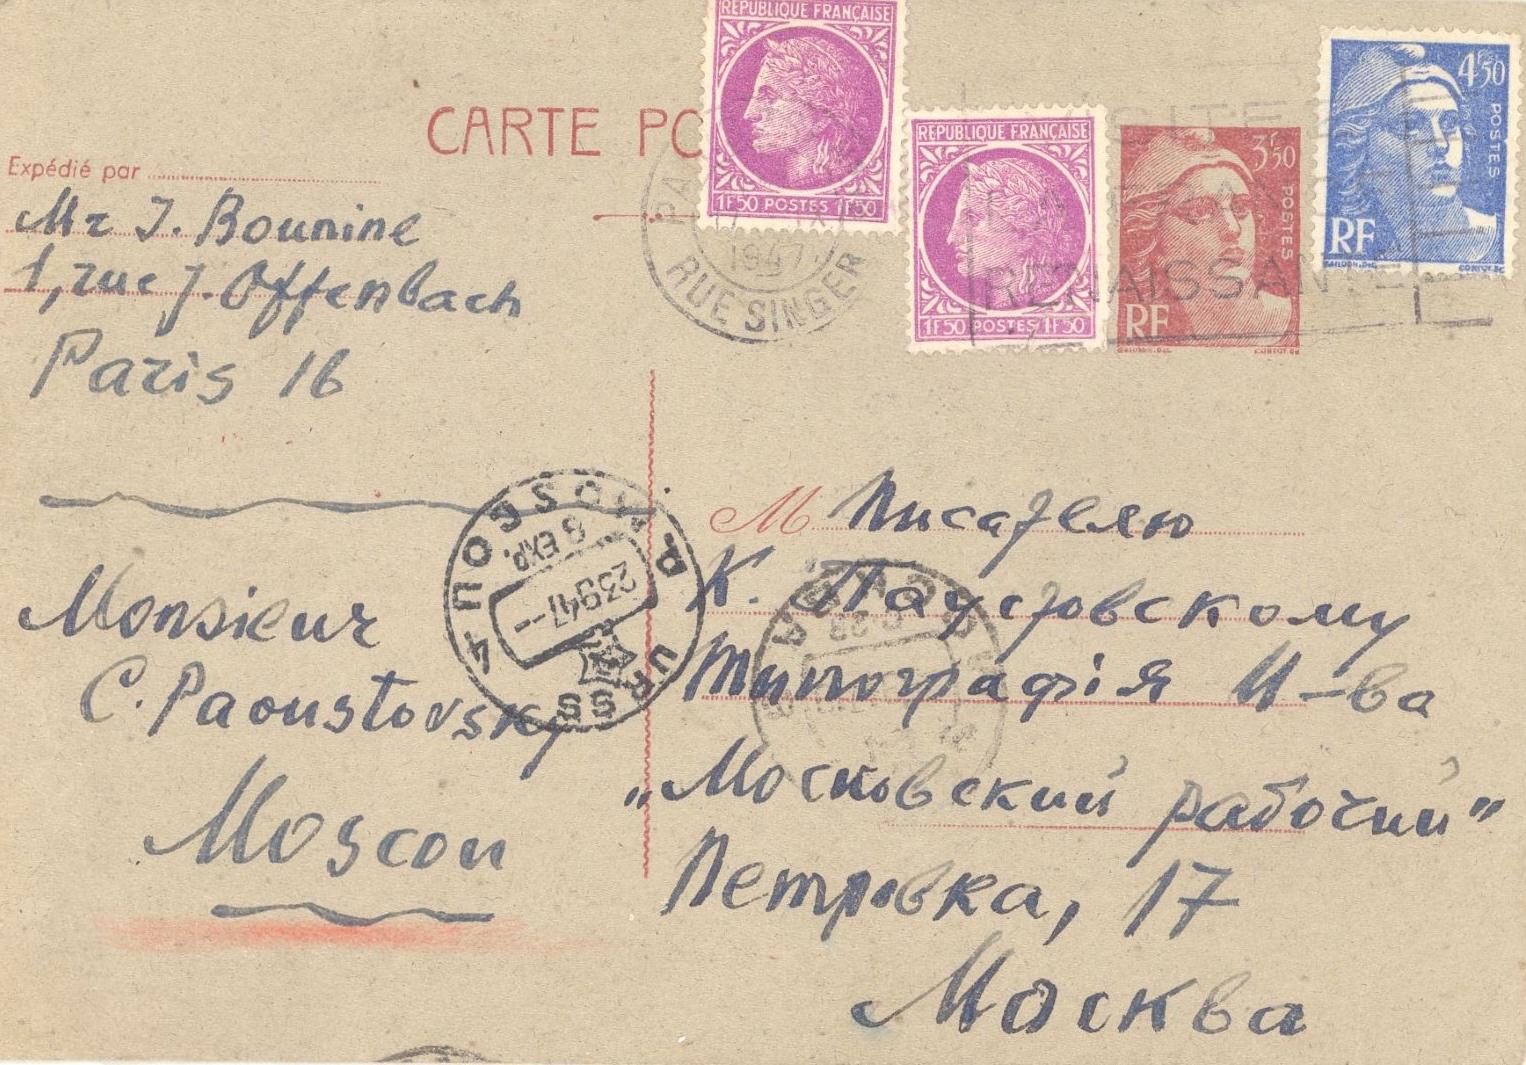 CARTE PO
Expédié par
Mr J. Bounine
1, rue J. Offenbach
Paris 16
REPUBLIQUE FRANÇAISE
1F50 POSTES 1F50
REPUBLIQUE FRANÇAISE
1F50 POSTES 1F50
3F50
POSTES
RF
4F50
POSTES
RF
1947
RUE SINGER
RENAISSANTE
MOSCOU 4
8 EXP.
23947
URSS
Monsieur
C. Paoustovsky
Moscou
M Писателю
К. Паустовскому
Типографія И-ва
„Московский рабочий"
Петровка, 17
Москва